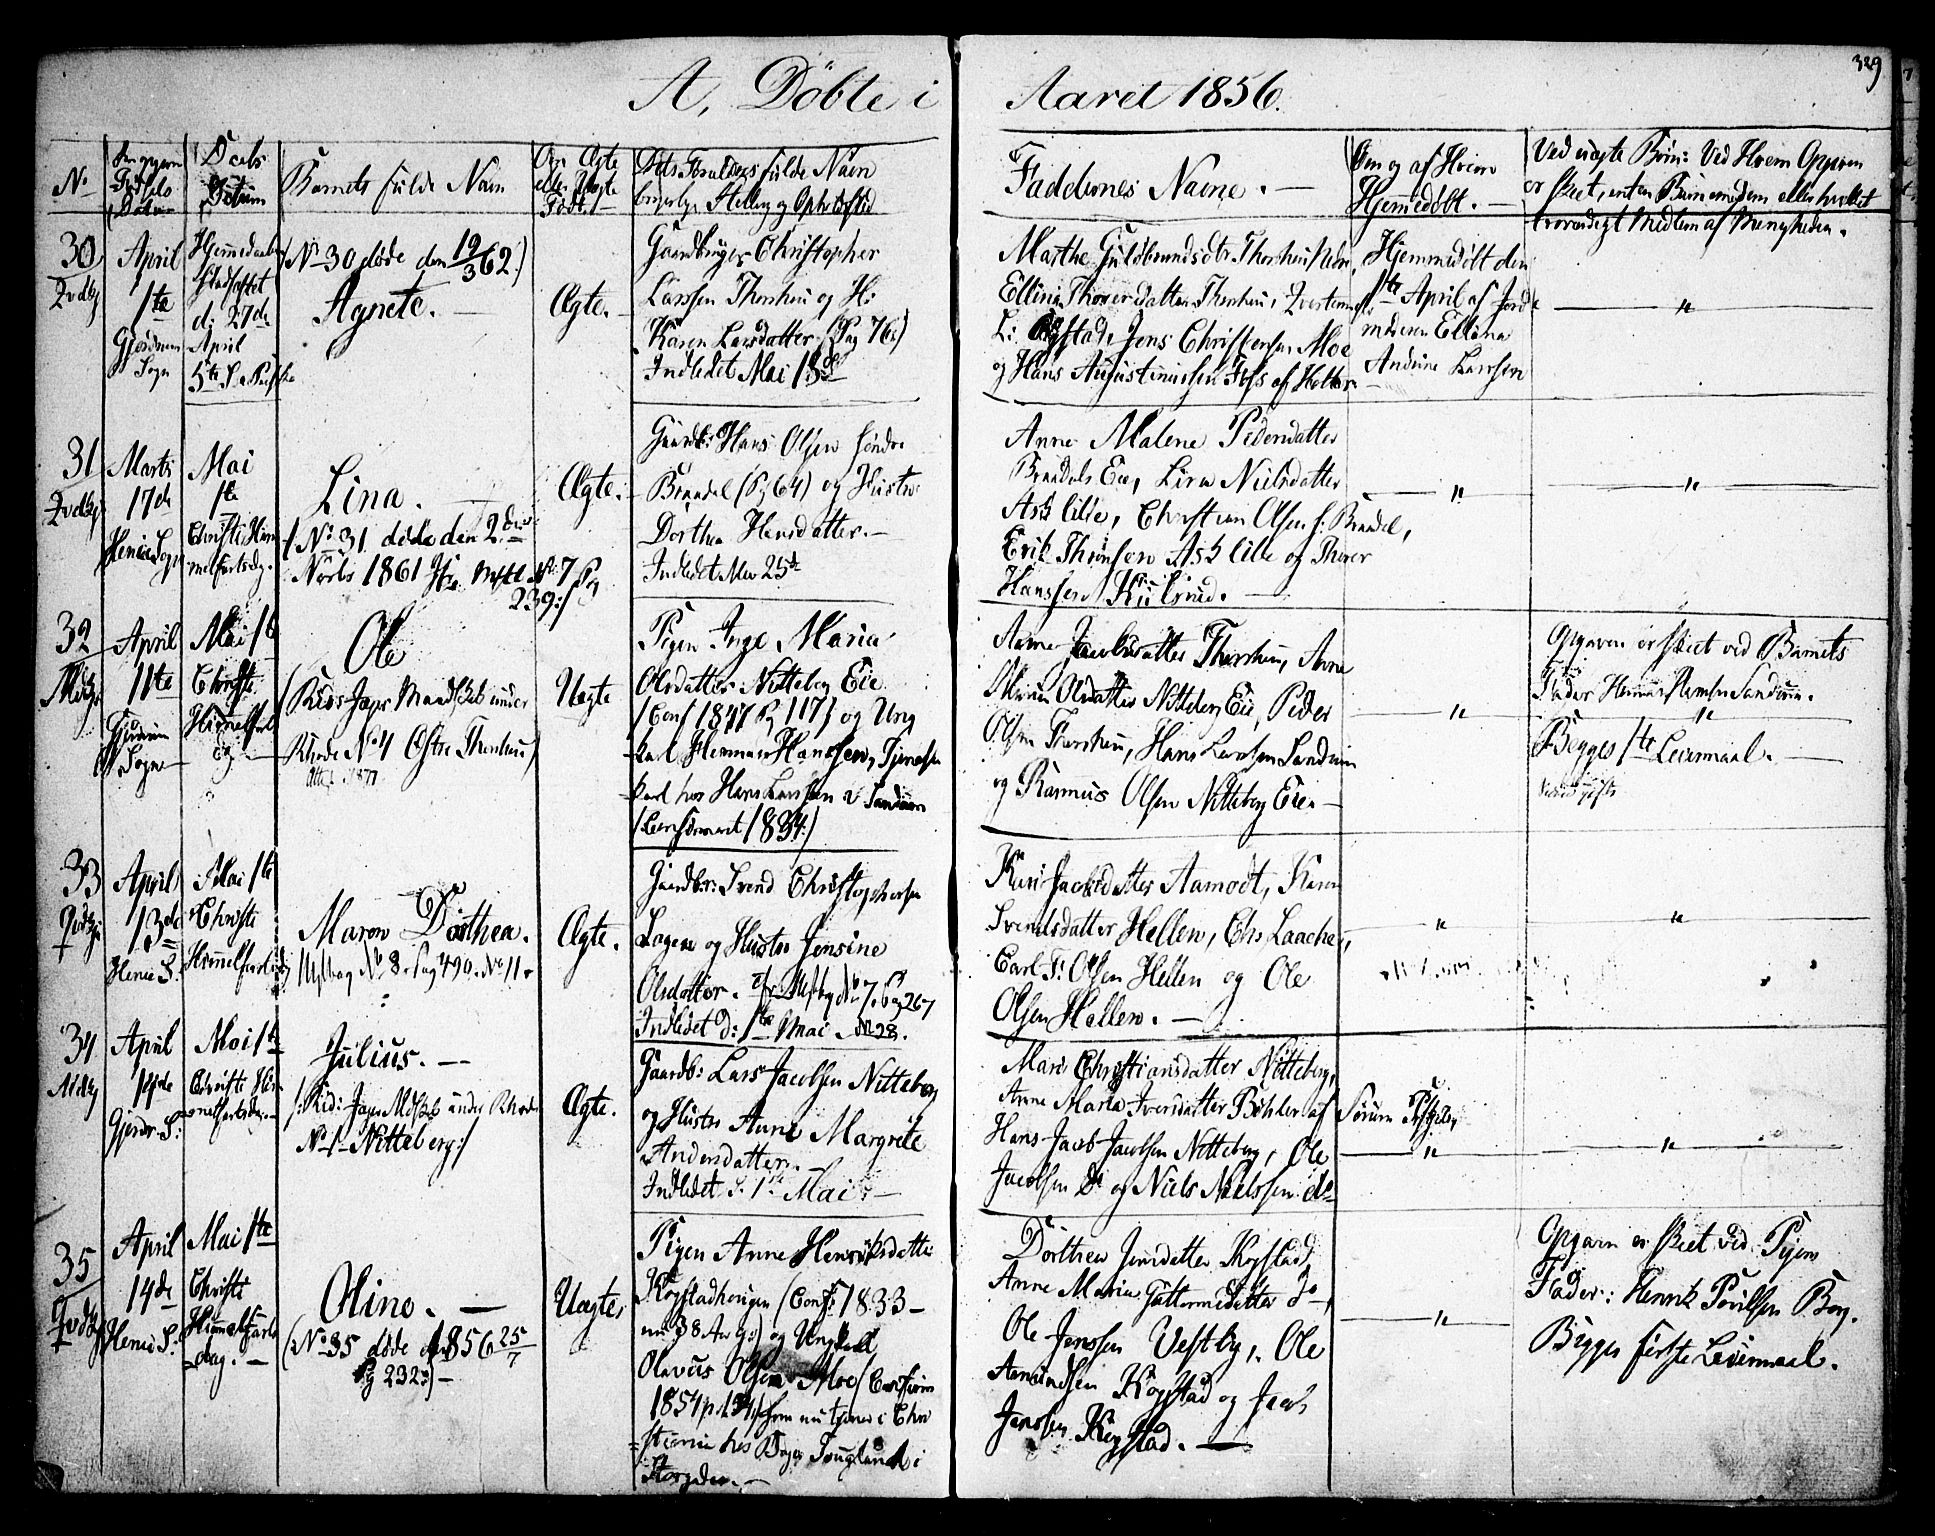 329
A, Döbte i Aaret 1856.
No
Födsels
Datum
Daabs
Datum
Barnets fulde Navn
Om Ægte
eller Uægte
Födt.
Dets Forældres fulde Navn
Stilling og Opholdsted
Faddernes Navne. —
Om og af Hvem
Hjemmedöbt. —
Ved uægte Börn: Ved Hvem Opgaven
er skeet, enten Barnemoderen eller hvilket
troværdigt Medlem af Menigheden.
30
April
1ste
Gjerdrum
Sogn
Hjemmedaaben
Stadfæstet
d: 27de
April
5te S. e. Paaske
(No 30 döde den 19/3 62.)
Agnete.
Ægte.
Gaardbruger Christopher
Larssen Thorshuu og H:
Karen Larsdatter (Pag 76)
Indledet Mai 18de
Marthe Guldbrandsdtr. Thorshuu
Elline Thorersdatter Thorshuu,
L: Kogstad, Jens Christensen Moe
og Hans Augustinussen Foss af Holter
Hjemmedöbt den
1ste April af Jorde
moderen Elline
Andrine Larssen
"
31
Marts
17de
Henie Sogn
Mai
1ste
Christi Him
melfartsdag.
Lina.
(No 31 döde den 2den
Marts 1861 No 7 Pg
239:)
Ægte.
Gaardb: Hans Olsen söndre
Braadal (Pg 64) og Hustru
Dorthea Hansdatter. —
Indledet Mai 25de
Anne Malene Pedersdatter
Braadals Eie, Lisa Nielsdatter
Ask lille, Christian Olsen s: Braadal,
Erik Thronsen Ask lille og Thorer
Hanssen Kulsrud.
"
"
32
April
11te
Gjerdrum
Sogn
Mai 1ste
Christi
Himmelfarts
dg
Ole
No 4 Østre Thorshuu)
Uægte
Pigen Inge Maria
Olsdatter Nitteberg Eie
(Conf 1847 Pg 117) og Ung
karl Herman Hanssen, Tjeneste
karl hos Hans Larssen Sandum
1834:)
Anne Jacobsdatter Thorshuu, Anne
Maria Olsdatter Nitteberg Eie, Peder
Olsen Thorshuu, Hans Larssen Sandum
og Rasmus Olsen Nitteberg Eie. —
"
Opgaven er skeet ved Barnets
Fader Herman Hansen Sandum.
"
Begges 1ste Leiermaal. —
33
April
13de
Henie S:
Mai 1ste
Christi
Himmelfartsdg
Maren Dorthea.
No 8. Pag 490. No 11.
Ægte.
Gaardbr: Svend Christophersen
og Hustru Jensine
Olsdatter. No 7. Pg 267
Indledet d: 1ste Mai No 28.
Kari Jacobsdatter Aamodt, Karen
Svendsdatter Hellen, Chr. Laache,
Carl F: Olsen Hellen og Ole
Olsen Hellen. —
"
"
34
April
14de
Gjerdr. S:
Mai 1ste
Christi Him
melfartsdag.
Julius. —
No 1 Nitteberg:)
Ægte.
Gaardb: Lars Jacobsen Nitteberg
og Hustru Anne Margrete
Andersdatter. —
Indledet d. 1ste Mai. —
Mari Christiansdatter Nitteberg,
Anne Maria Iversdatter Böhler af Sörum Præstgjeld,
Hans Jacob Jacobsen Nitteberg, Ole
Jacobsen Do og Niels Nielssen do
"
"
35
April
14de
Henie S:
Mai 1ste
Christi
Himmelfarts
dag. —
Oline. —
(No 35 döde 1856 25/7
Pg 232:) —
Uægte,
Pigen Anne Henriksdatter
Kogstadhougen (Conf: 1833 —
nu 38 Aar g:) og Ungkarl
Olavus Olsen Moe (Confirm
1854 som nu tjener i Chri
stiania hos
Storgaden. —
Dorthea Jensdatter Kogstad,
Anne Maria Guttormsdatter Do,
Ole Jenssen Vestby, Ole
Amundsen Kogstad og Jacob
Jenssen Kogstad. —
"
Opgaven er skeet ved Pigens
Fader: Henrik Povelsen Berg.
Begges förste Leiermaal.